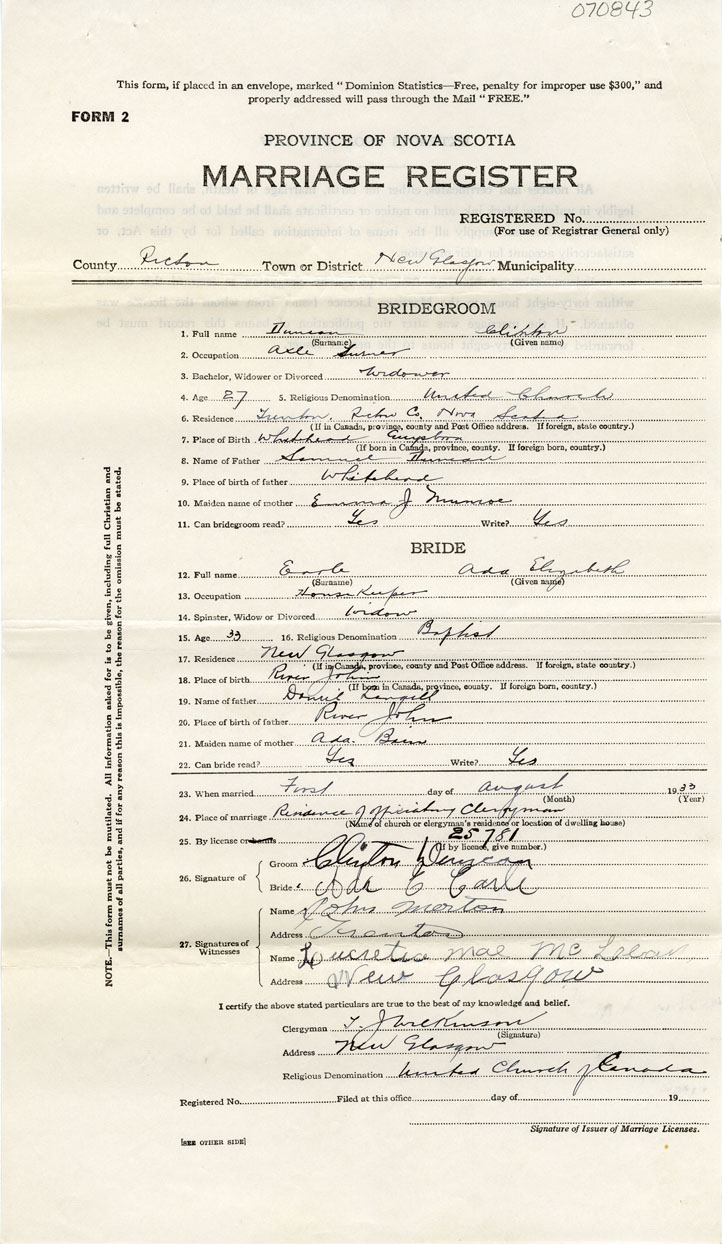 070843
This form, if placed in an envelope, marked "Dominion Statistics—Free, penalty for improper use $300," and
properly addressed will pass through the Mail "FREE."
FORM 2
PROVINCE OF NOVA SCOTIA
MARRIAGE REGISTER
REGISTERED No.
(For use of Registrar General only)
County Pictou Town or District New Glasgow Municipality
BRIDEGROOM
1. Full name Duncan Clifton
(Surname) (Given name)
2. Occupation Axle Turner
3. Bachelor, Widower or Divorced Widower
4. Age 27 5. Religious Denomination United Church
6. Residence Trenton, Pictou Co. Nova Scotia
(If in Canada, province, county and Post Office address. If foreign, state country.)
7. Place of Birth Whitehead Guysboro
(If born in Canada, province, county. If foreign born, country.)
8. Name of Father Samuel Duncan
9. Place of birth of father Whitehead
10. Maiden name of mother Emma J Munroe
11. Can bridegroom read? Yes Write? Yes
BRIDE
12. Full name Earle Ada Elizabeth
(Surname) (Given name)
13. Occupation House Keeper
14. Spinster, Widow or Divorced Widow
15. Age 33 16. Religious Denomination Baptist
17. Residence New Glasgow
(If in Canada, province, county and Post Office address. If foreign, state country.)
18. Place of birth River John
(If born in Canada, province, county. If foreign born, country.)
19. Name of father Daniel Langill
20. Place of birth of father River John
21. Maiden name of mother Ada
22. Can bride read? Yes Write? Yes
23. When married First day of August 1933
(Month) (Year)
24. Place of marriage Residence of officiating Clergyman
(Name of church or clergyman's residence or location of dwelling house)
25. By license or banns 25781
(If by licence, give number.)
26. Signature of
Groom Clifton Duncan
Bride Ada E Earle
27. Signatures of Witnesses
Name John Morton
Address Trenton
Name Lucretia Mae
Address New Glasgow
I certify the above stated particulars are true to the best of my knowledge and belief.
Clergyman
(Signature)
Address New Glasgow
Religious Denomination United Church of Canada
Registered No. Filed at this office day of 19
Signature of Issuer of Marriage Licenses.
[SEE OTHER SIDE]
NOTE.—This form must not be mutilated. All information asked for is to be given, including full Christian and
surnames of all parties, and if for any reason this is impossible, the reason for the omission must be stated.